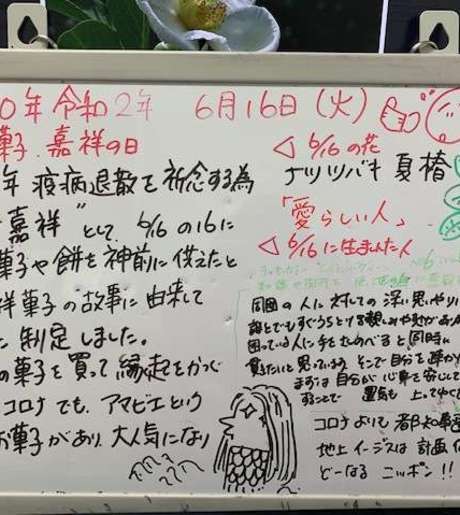 0年 令和2年 6月16日(火)
菓子.嘉祥の日
年 疫病退散を祈念する為
嘉祥" として、6/16の16に
菓子や餅を神前に供えたと
祥菓子の故事に由来して
に制定しました。
の菓子を買って縁起をかつぐ
コロナでも、アマビエという
お菓子があり、大人気になり
◁ 6/16の花
ナツツバキ 夏椿
「愛らしい人」
◁ 6/16に生まれた人
周囲の人に対しての深い思いやり
誰とでもすぐうちとける
困っている人に手をさしのべると同時に
思っている。そこで自分を
まずは自分が心身を安じして
することで 運気も上ってゆく
コロナよいそ、都知事
地上イージスは計画
どーなるニッポン!!